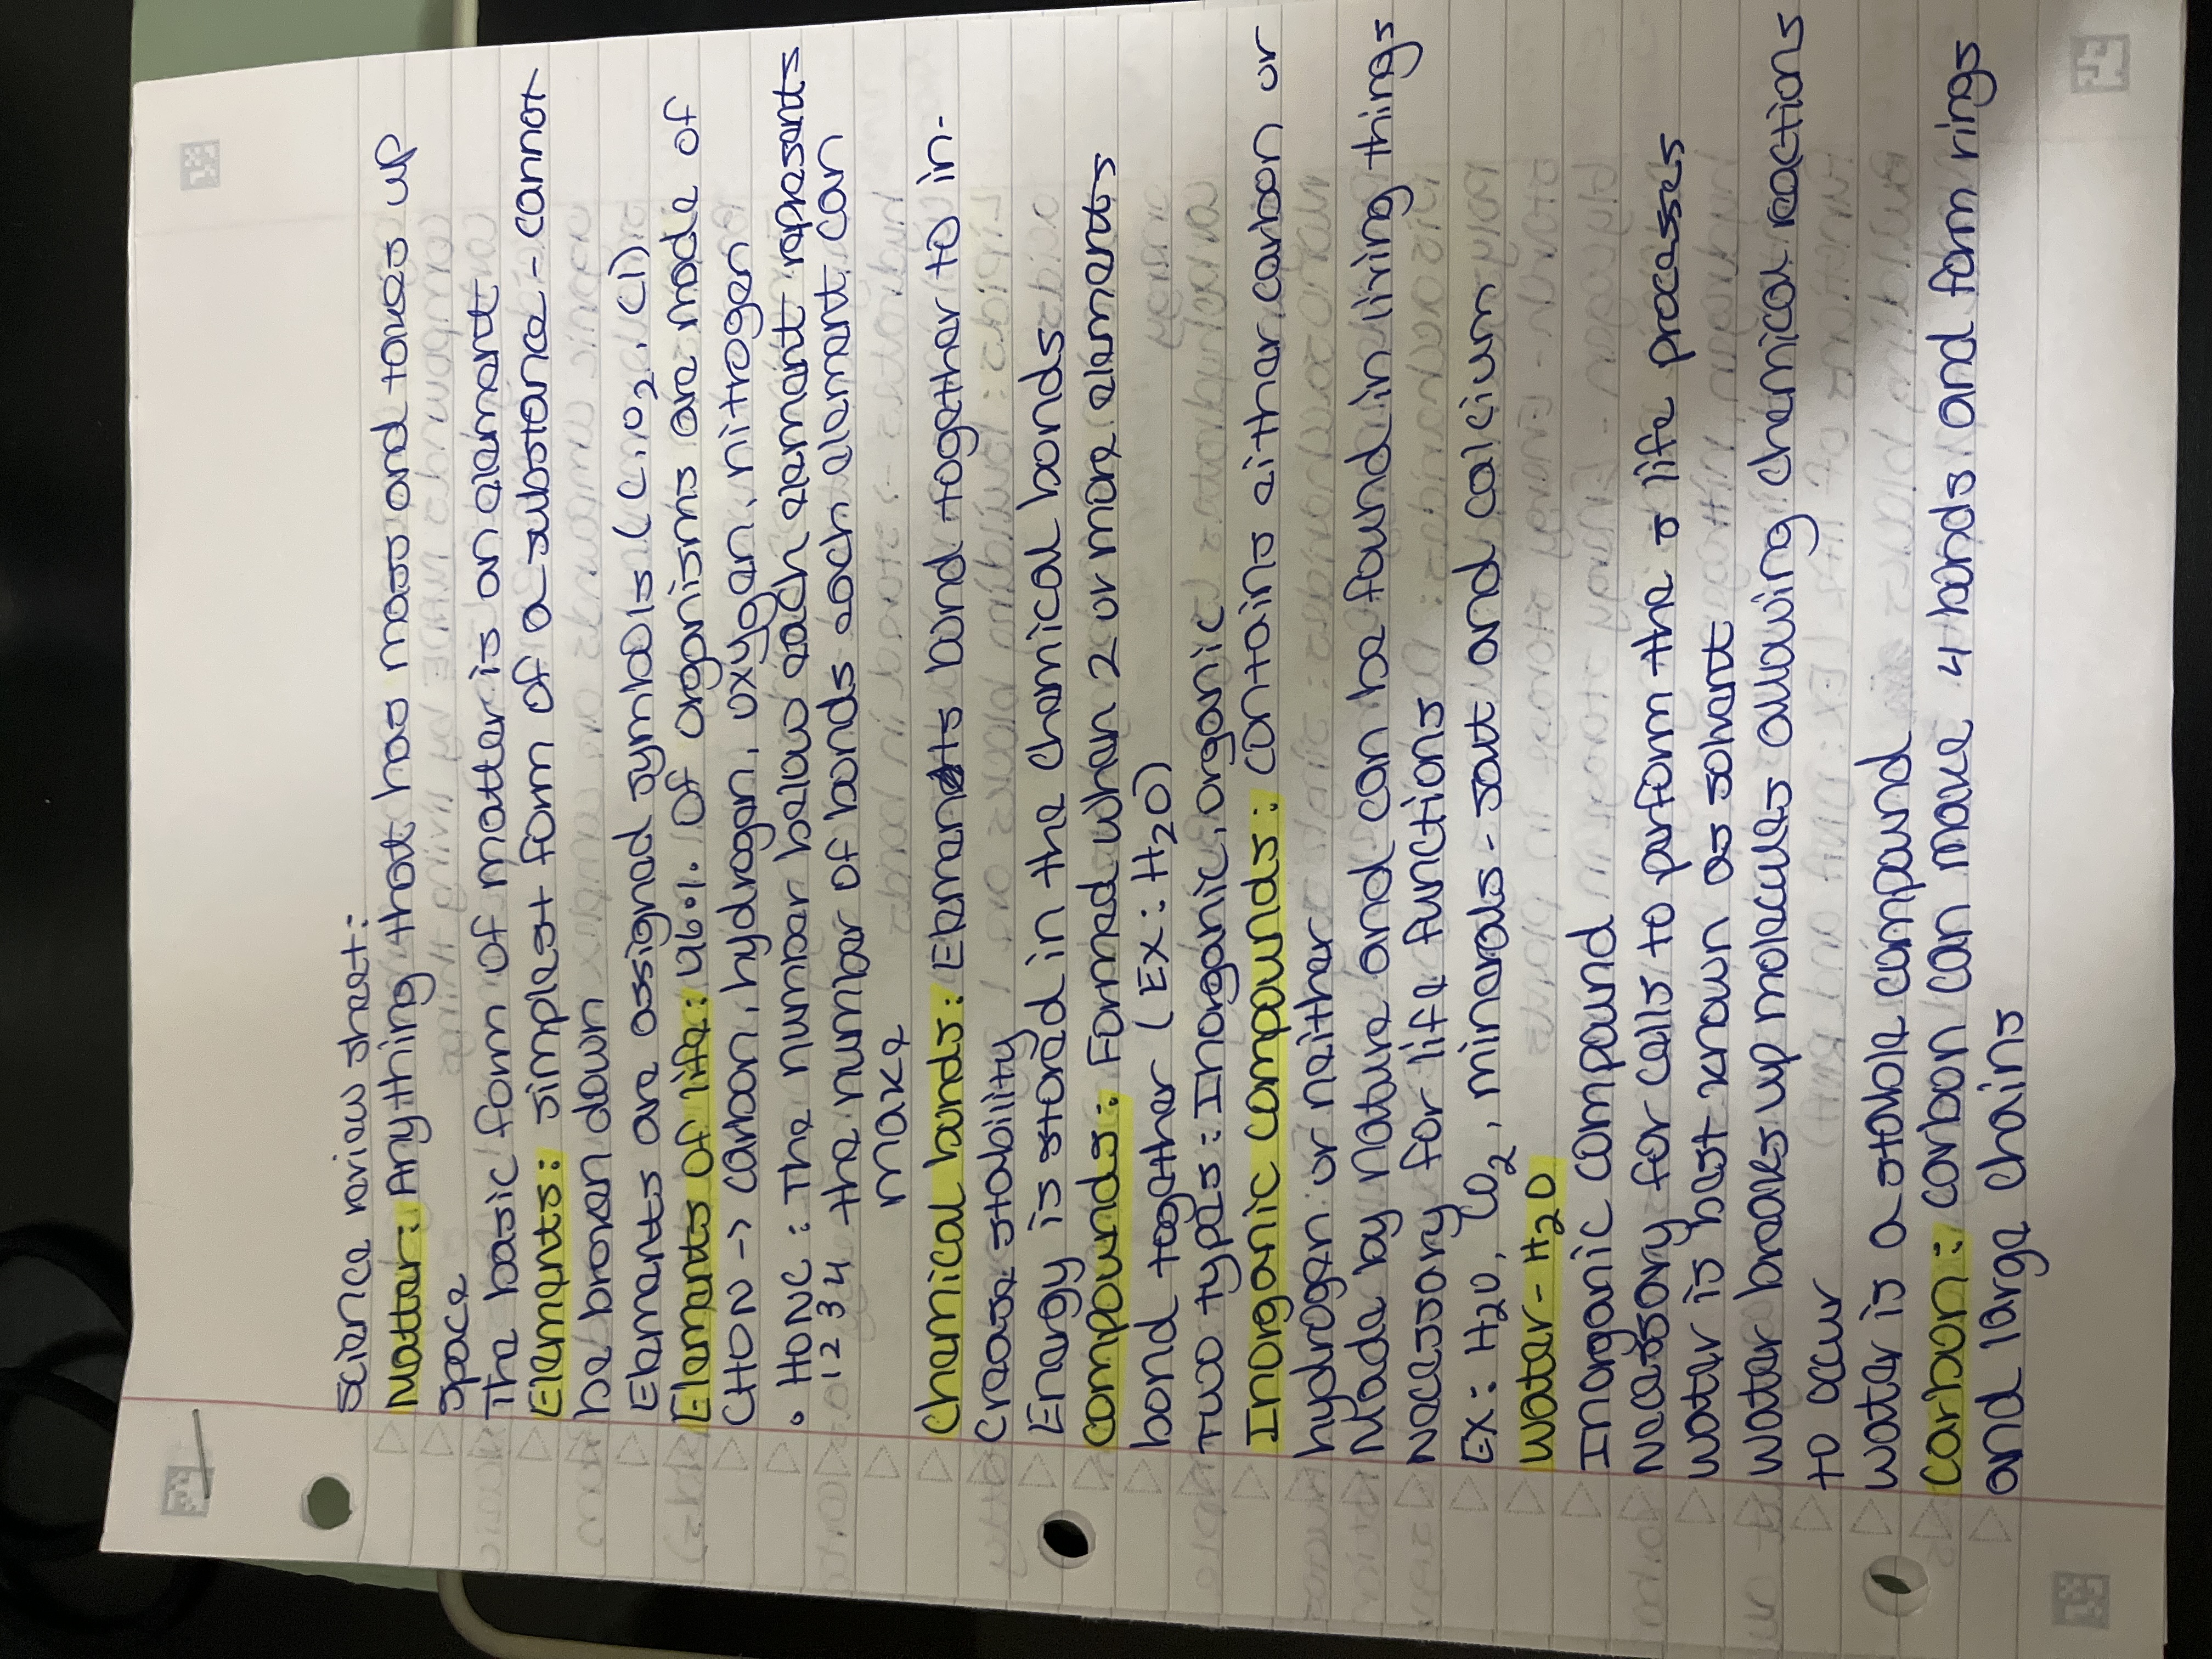 Science review sheet:
Matter: Anything that has mass and takes up
space
The basic form of matter is an element
Elements: simplest form of a substance - cannot
be broken down
Elements are assigned symbols (C, O₂, Cl)
Elements of life: 96% of organisms are made of
CHON -> carbon, hydrogen, oxygen, nitrogen
• HONC : The number below each element represents
1 2 3 4 the number of bonds each element can
make
Chemical bonds: Elements bond together to in-
crease stability
Energy is stored in the chemical bonds
Compounds: Formed when 2 or more elements
bond together (Ex: H₂O)
Two types: Inorganic, organic
Inorganic compounds: contains either carbon or
hydrogen or neither
Made by nature and can be found in living things
Necessary for life functions
Ex: H₂O, CO₂, minerals - salt and calcium
Water - H₂O
Inorganic compound
Necessary for cells to perform the 8 life processes
water is best known as solvent
water breaks up molecules allowing chemical reactions
to occur
water is a stable compound
Carbon: carbon can make 4 bonds and form rings
and large chains